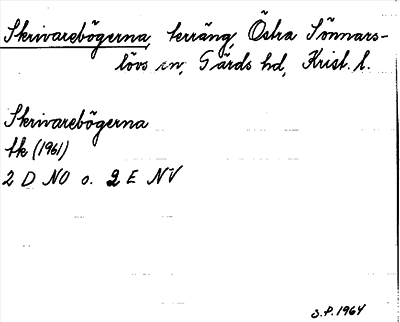 Skrivarebögerna, terräng, Östra Sönnars-
lövs sn, Gärds hd, Krist. l.
Skrivarebögerna
tk (1961)
2 D NO o. 2 E NV
S.P. 1964